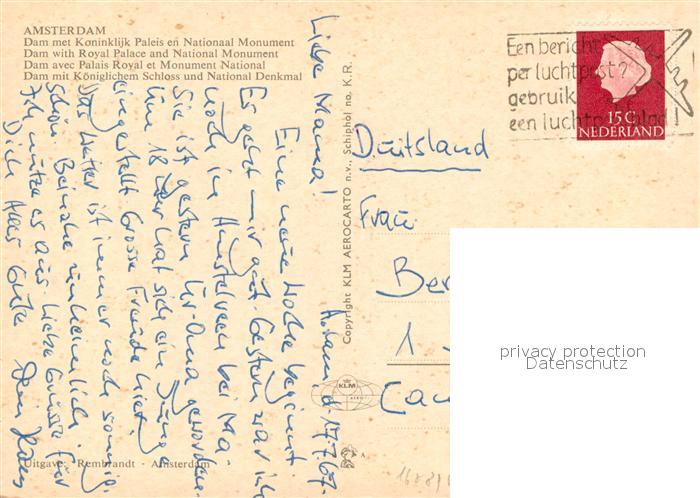 AMSTERDAM
Dam met Koninklijk Paleis en Nationaal Monument
Dam with Royal Palace and National Monument
Dam avec Palais Royal et Monument National
Dam mit Königlichem Schloss und National Denkmal
Een bericht
per luchtpost?
gebruik
een luchtpostblad!
15 C
NEDERLAND
A.dam, d. 17.7.67.
Liebe Mama!
Eine neue Woche beginnt.
Es geht mir gut. Gestern war ich
noch in Amstelveen bei Ma.
Sie ist gestern Ur-Oma geworden.
Um 18 Uhr hat sich ein Junge
eingestellt. Grosse Freude hier.
Das Wetter ist immer noch sonnig,
schön. Beinahe unheimlich.
Ich nütze es aus. Liebe Grüsse für
Dich Alles Gute Dein
Copyright KLM AEROCARTO n.v. Schiphol no. K.R.
KLM
Duitsland
Frau
Ber
1
Cau
privacy protection
Datenschutz
Uitgave: Rembrandt - Amsterdam